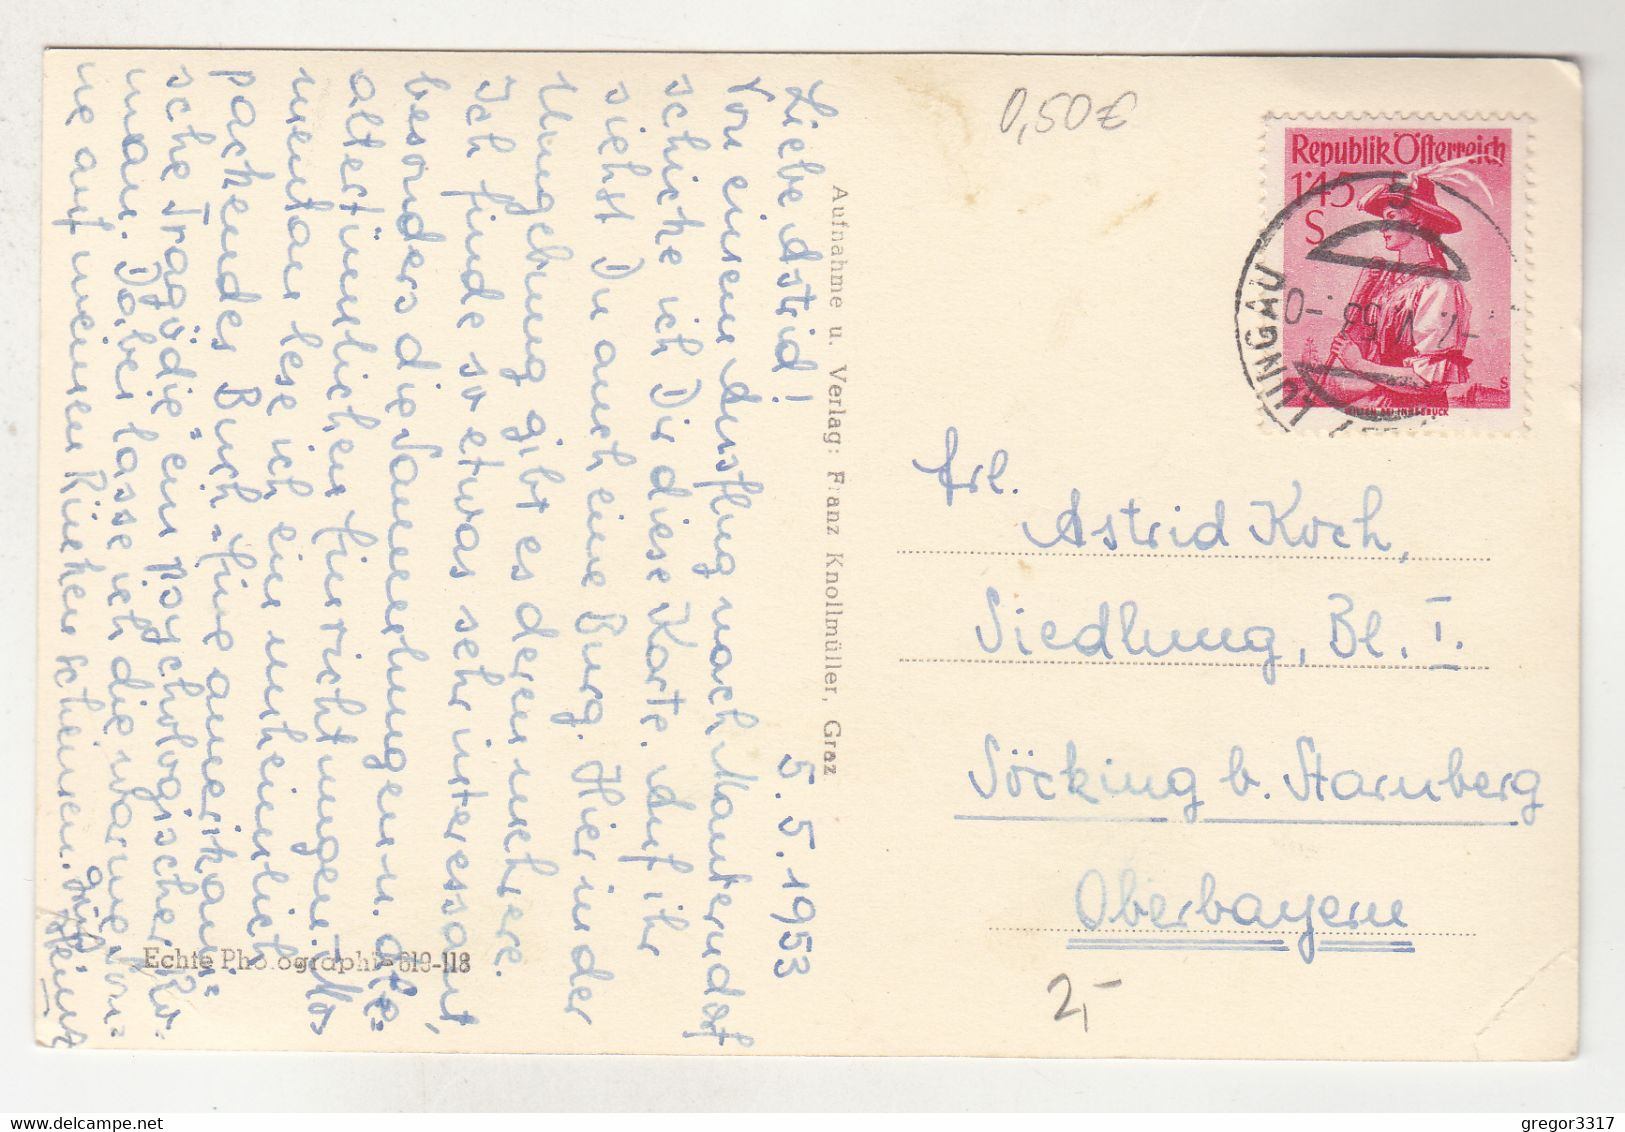 5. 5. 1953
Liebe Astrid!
Von einem Ausflug nach Mauterndorf
schicke ich Dir diese Karte. Auf ihr
siehst Du auch eine Burg. Hier in der
Umgebung gibt es deren mehrere.
Ich finde so etwas sehr interessant,
besonders die
altertümlichen Einrichtungen.
mentan lese ich ein unheimlich
packendes Buch "Eine amerikani=
sche Tragödie" ein psychologischer Ro=
man. Dabei lasse ich die warme Son=
ne auf meinen Rücken scheinen.
Aufnahme u. Verlag: Franz Knollmüller, Graz
Echte Photographie 818-118
0,50€
Republik Österreich
1'45
S
WILTEN BEI INNSBRUCK
LUNGAU
Frl.
Astrid Koch,
Siedlung, Bl. I.
Söcking b. Starnberg
Oberbayern
2,-
gregor3317
delcampe.net